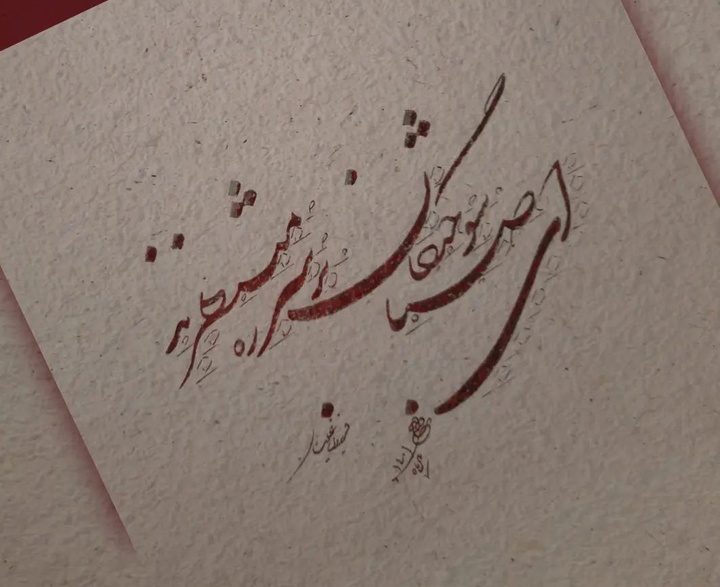 ای صبا سوختگان بر سر ره منتظرند